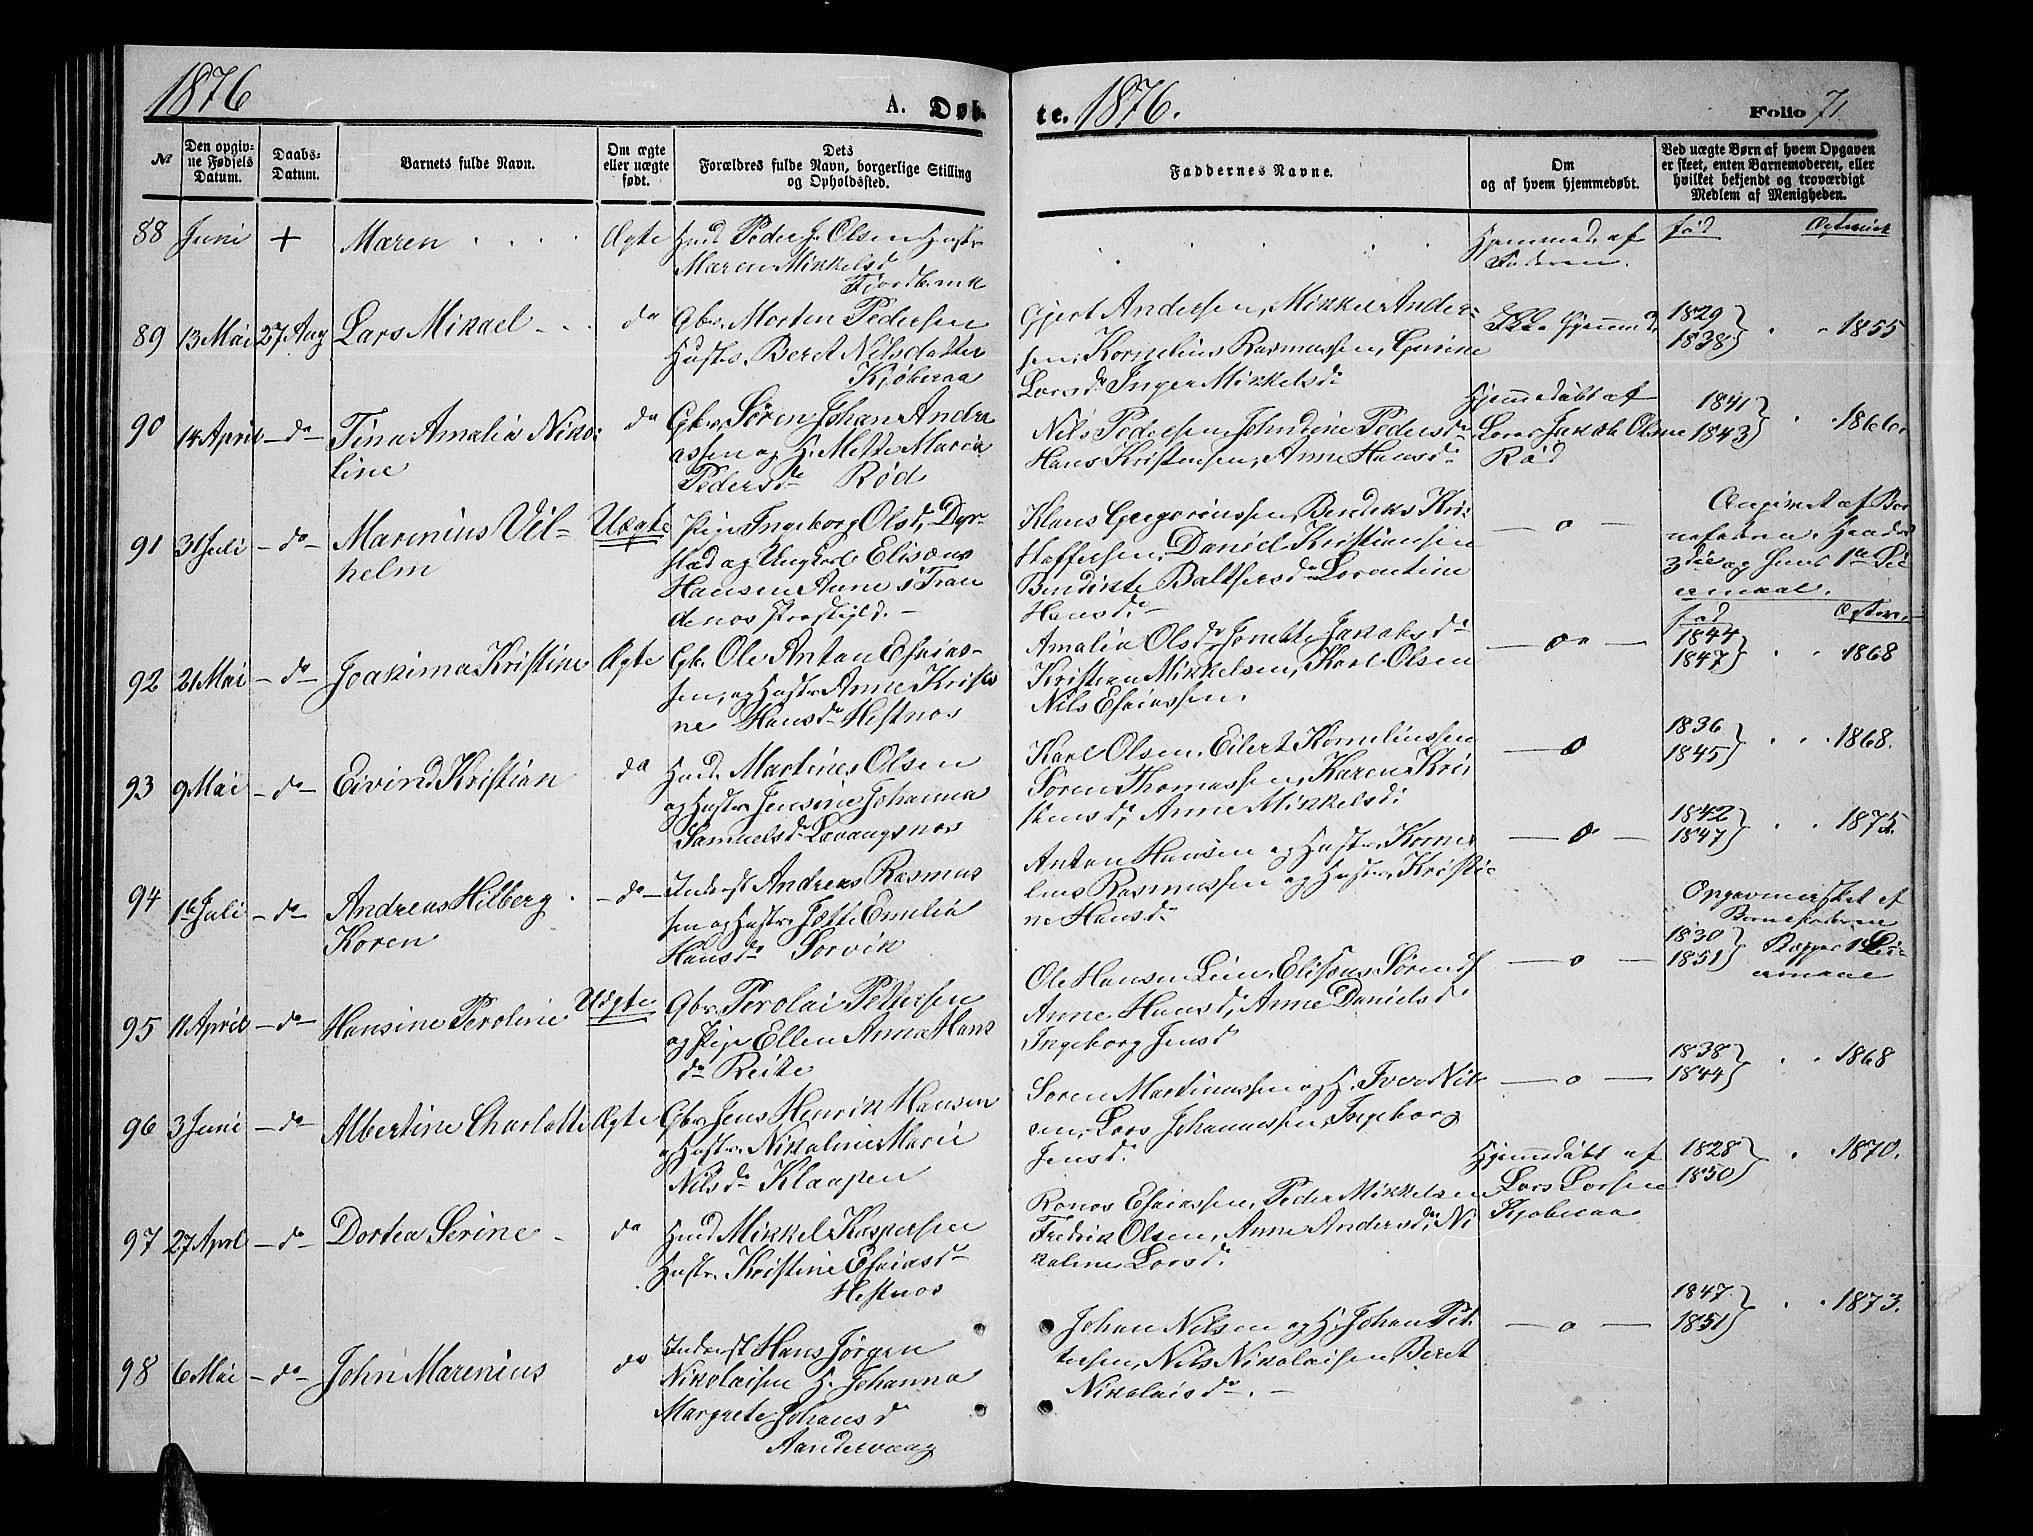 1876
A. Døb-
te. 1876.
Folio 71
№
Den opgiv-
ne Fødsels
Datum.
Daabs-
Datum.
Barnets fulde Navn.
Om ægte
eller uægte
født.
Dets
Forældres fulde Navn, borgerlige Stilling
og Opholdssted.
Faddernes Navne.
Om
og af hvem hjemmedøbt.
Ved uægte Børn af hvem Opgaven
er skeet, enten Barnemoderen, eller
hvilket bekjendt og troværdigt
Medlem af Menigheden.
88 Juni + Maren Ægte
Husm Peder J. Olsen Hustr
Maren Mikkelsd
Fjordbunk
Hjemmed. af
Faderen.
fød
89 13 Mai 27 Aug Lars Mikael do
Gbr. Morten Pedersen
Hustr. Beret Nilsdatter
Kjøberaa
Gjert Andersen, Mikkel Ander-
sen, Kornelius Rasmussen, Gurine
Larsd. Inger Mikkelsd.
Ikke Hjemmd
1829
1838 1855
90 14 April do Tina Amalia Niko-
line
do
Gbr. Søren Johan Andre
assen og H. Mette Maria
Pedersd Rød
Nils Pedersen, Johndine Pedersd
Hans Kristensen, Anne Hansd.
Hjemmedøbt af
Lars Jakob Olsen
Rød
1841
1843 1866.
91 31 Juli do Marenius Vil-
helm
Uægte
Pige Ingeborg Olsd, Dyr-
stad og Ungkarl Elisæus
Hansen Anne i Tran
denes Præstgjeld. -
Klaus Gregoriussen, Bendiks Kri-
stoffersen, Daniel Kristiansen
Bendikte Baltsersd Lorentine
Hansd.
o
Angivet af Bar
nefaderen. Hendes
3die og hans 1te Lei
ermaal.
fød
92 21 Mai do Joakima Kristine Ægte
Gbr. Ole Anton Esaias-
sen, og Hustr. Anne Kristi
ne Hansd Hestnes
Amalia Olsd, Jonette Jakobsd
Kristian Mikkelsen, Karl Olsen
Nils Esaiassen.
1844
1847 1868
93 9 Mai do Eivind Kristian do
Husm. Martines Olsen
og Hustr. Jensine Johanna
Samuelsd. Lavangsnes
Karl Olsen, Eilert Kornelinssen
Søren Thomassen, Karen Kri-
stensd, Anne Mikkelsd.
o
1836
1845 1868.
94 16 Juli do Andreas Hilberg
Koren
do
Inderst Andreas Rasmus
sen og Hustr. Jette Emelia
Hansd. Sørvik
Anton Hansen og Hustr. Korne-
lius Rasmussen og Hustr. Kristi-
ne Hansd.
o
1842
1847 1875.
95 11 April do Hansine Peroline Uægte
Gbr. Perolai Pettersen
og Pige Ellen Anna Hans
d. Reite
Ole Hansen Lien, Elisæus Sørens
Anne Hansd, Anne Danielsd.
Ingeborg Jensd
o
Opgaven er skeet af
Barnefaderen
1830
1851 Begges 1te Lei-
ermaal
96 3 Juni do Albertine Charlotte Ægte
Gbr. Jens Henrik Hansen
og Hustr. Nikoline Marie
Nilsd. Klaapen
Søren Martinussen og H. Iver Nik
en, Lars Johannessen, Ingeborg
Jensd.
o
1838
1844 1868
97 27 April do Dortea Serine do
Husm Mikkel Kaspersen
Hustr. Kristine Esaiasd
Hestnes
Ronos Esaiassen, Peder Mikkelsen
Fredrik Olsen, Anne Andersd, Ni
koline Larsd.
Hjemmedøbt af
Lars Larsen
Kjøberaa
1828
1850 1870.
98 6 Mai do John Marenius do
Inderst Hans Jørgen
Nikolaisen H. Johanna
Margrete Johansd
Aandervaag
Johan Nilsen og H. Johan Pet-
tersen, Nils Nikolaisen, Beret
Nikolaisd.
o
1847
1851 1873.